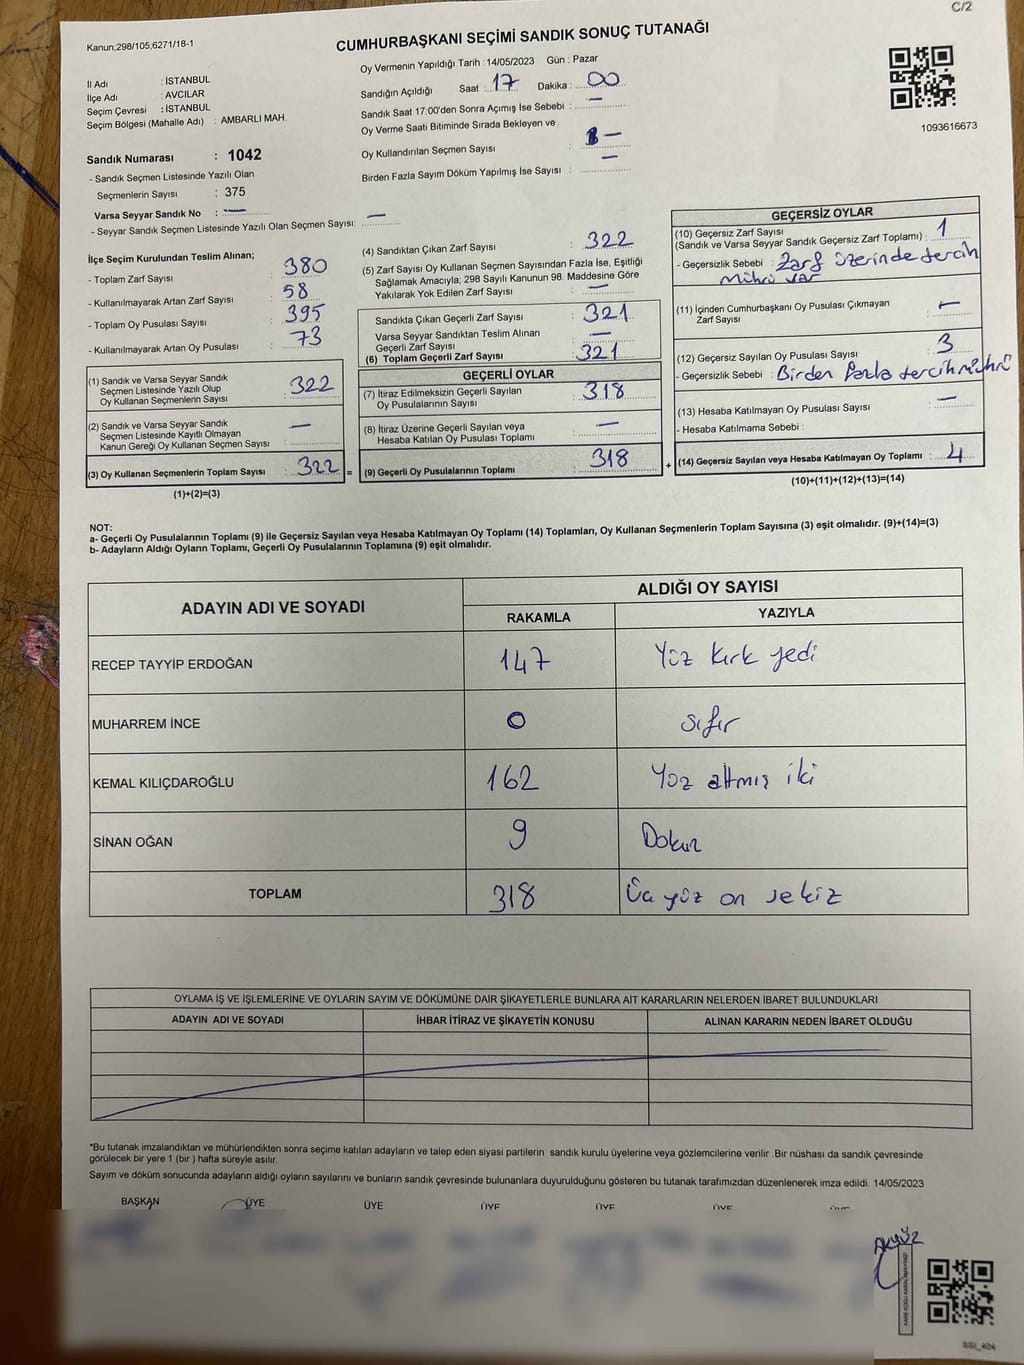 C/2
Kanun;298/105;6271/18-1
CUMHURBAŞKANI SEÇİMİ SANDIK SONUÇ TUTANAĞI
Oy Vermenin Yapıldığı Tarih :14/05/2023 Gün : Pazar
İl Adı : İSTANBUL
İlçe Adı : AVCILAR
Seçim Çevresi : İSTANBUL
Seçim Bölgesi (Mahalle Adı) : AMBARLI MAH.
Sandığın Açıldığı Saat : 17 Dakika : 00
Sandık Saat 17:00'den Sonra Açımış İse Sebebi : —
Oy Verme Saati Bitiminde Sırada Bekleyen ve
Oy Kullandırılan Seçmen Sayısı : —
Birden Fazla Sayım Döküm Yapılmış İse Sayısı : —
1093616673
Sandık Numarası : 1042
- Sandık Seçmen Listesinde Yazılı Olan
Seçmenlerin Sayısı : 375
Varsa Seyyar Sandık No : —
- Seyyar Sandık Seçmen Listesinde Yazılı Olan Seçmen Sayısı: —
İlçe Seçim Kurulundan Teslim Alınan;
- Toplam Zarf Sayısı : 380
- Kullanılmayarak Artan Zarf Sayısı : 58
- Toplam Oy Pusulası Sayısı : 395
- Kullanılmayarak Artan Oy Pusulası : 73
(1) Sandık ve Varsa Seyyar Sandık
Seçmen Listesinde Yazılı Olup
Oy Kullanan Seçmenlerin Sayısı : 322
(2) Sandık ve Varsa Seyyar Sandık
Seçmen Listesinde Kayıtlı Olmayan
Kanun Gereği Oy Kullanan Seçmen Sayısı : —
(3) Oy Kullanan Seçmenlerin Toplam Sayısı : 322 =
(1)+(2)=(3)
(4) Sandıktan Çıkan Zarf Sayısı : 322
(5) Zarf Sayısı Oy Kullanan Seçmen Sayısından Fazla İse, Eşitliği
Sağlamak Amacıyla; 298 Sayılı Kanunun 98. Maddesine Göre
Yakılarak Yok Edilen Zarf Sayısı : —
Sandıkta Çıkan Geçerli Zarf Sayısı : 321
Varsa Seyyar Sandıktan Teslim Alınan
Geçerli Zarf Sayısı : —
(6) Toplam Geçerli Zarf Sayısı : 321
GEÇERLİ OYLAR
(7) İtiraz Edilmeksizin Geçerli Sayılan
Oy Pusulalarının Sayısı : 318
(8) İtiraz Üzerine Geçerli Sayılan veya
Hesaba Katılan Oy Pusulası Toplamı : —
(9) Geçerli Oy Pusulalarının Toplamı : 318 +
GEÇERSİZ OYLAR
(10) Geçersiz Zarf Sayısı
(Sandık ve Varsa Seyyar Sandık Geçersiz Zarf Toplamı) : 1
- Geçersizlik Sebebi : Zarf üzerinde tercih
mührü var
(11) İçinden Cumhurbaşkanı Oy Pusulası Çıkmayan
Zarf Sayısı : —
(12) Geçersiz Sayılan Oy Pusulası Sayısı : 3
- Geçersizlik Sebebi : Birden fazla tercih mührü
(13) Hesaba Katılmayan Oy Pusulası Sayısı : —
- Hesaba Katılmama Sebebi :
(14) Geçersiz Sayılan veya Hesaba Katılmayan Oy Toplamı : 4
(10)+(11)+(12)+(13)=(14)
NOT:
a- Geçerli Oy Pusulalarının Toplamı (9) ile Geçersiz Sayılan veya Hesaba Katılmayan Oy Toplamı (14) Toplamları, Oy Kullanan Seçmenlerin Toplam Sayısına (3) eşit olmalıdır. (9)+(14)=(3)
b- Adayların Aldığı Oyların Toplamı, Geçerli Oy Pusulalarının Toplamına (9) eşit olmalıdır.
ADAYIN ADI VE SOYADI ALDIĞI OY SAYISI
RAKAMLA YAZIYLA
RECEP TAYYİP ERDOĞAN 147 Yüz kırk yedi
MUHARREM İNCE 0 sıfır
KEMAL KILIÇDAROĞLU 162 Yüz altmış iki
SİNAN OĞAN 9 Dokuz
TOPLAM 318 Üç yüz on sekiz
OYLAMA İŞ VE İŞLEMLERİNE VE OYLARIN SAYIM VE DÖKÜMÜNE DAİR ŞİKAYETLERLE BUNLARA AİT KARARLARIN NELERDEN İBARET BULUNDUKLARI
ADAYIN ADI VE SOYADI İHBAR İTİRAZ VE ŞİKAYETİN KONUSU ALINAN KARARIN NEDEN İBARET OLDUĞU
*Bu tutanak imzalandıktan ve mühürlendikten sonra seçime katılan adayların ve talep eden siyasi partilerin sandık kurulu üyelerine veya gözlemcilerine verilir .Bir nüshası da sandık çevresinde
görülecek bir yere 1 (bir ) hafta süreyle asılır.
Sayım ve döküm sonucunda adayların aldığı oyların sayılarını ve bunların sandık çevresinde bulunanlara duyurulduğunu gösteren bu tutanak tarafımızdan düzenlenerek imza edildi. 14/05/2023
BAŞKAN ÜYE ÜYE ÜYE ÜYE ÜYE